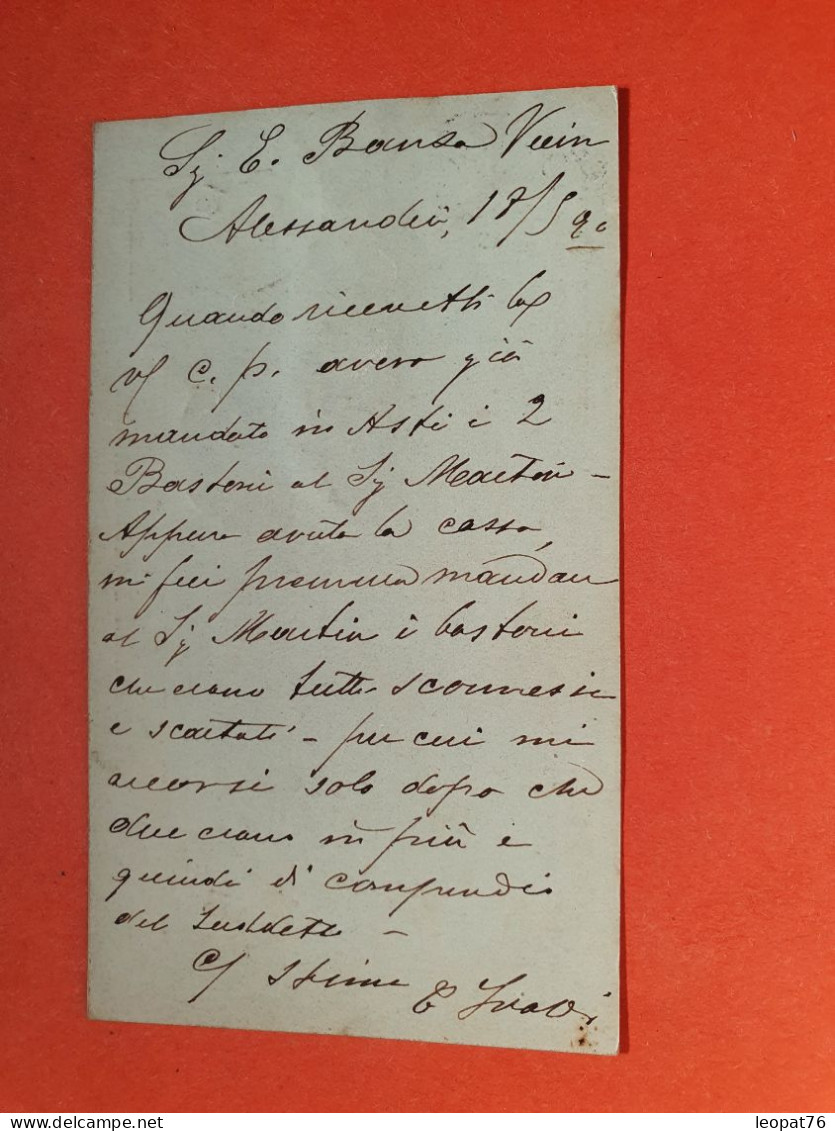 Sg E. Banza
Alessandria, 18/5 90
Quando ricevetti la
v/ c. p. avevo già
mandato in Asti i 2
Bastoni al Sg Martin -
Appena avuta la cassa,
mi feci premura mandare
al Sg Martin i bastoni
che erano tutti sconnessi
e scartati - per cui mi
accorsi solo dopo che
due erano in più e
quindi di
del suddetto -
C/ stima